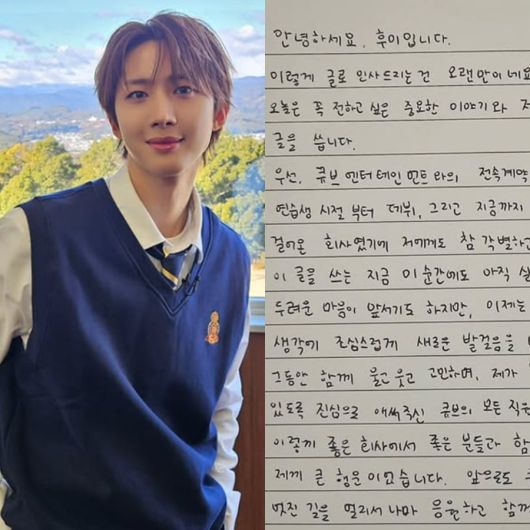 안녕하세요. 후이입니다.
이렇게 글로 인사드리는 건 오랜만이네요
오늘은 꼭 전하고 싶은 중요한 이야기와
글을 씁니다.
우선, 큐브엔터테인먼트와의 전속계약
연습생 시절부터 데뷔, 그리고 지금까지
걸어온 회사였기에 저에게도 참 각별하고
이 글을 쓰는 지금 이 순간에도 아직
두려운 마음이 앞서기도 하지만, 이제는
생각에 조심스럽게 새로운 발걸음을
그동안 함께 울고 웃고 고민하며, 제가
있도록 진심으로 애써주신 큐브의 모든 직원
이렇게 좋은 회사에서 좋은 분들과 함
제게 큰 행운이었습니다. 앞으로도
멋진 길을 멀리서나마 응원하고 함께